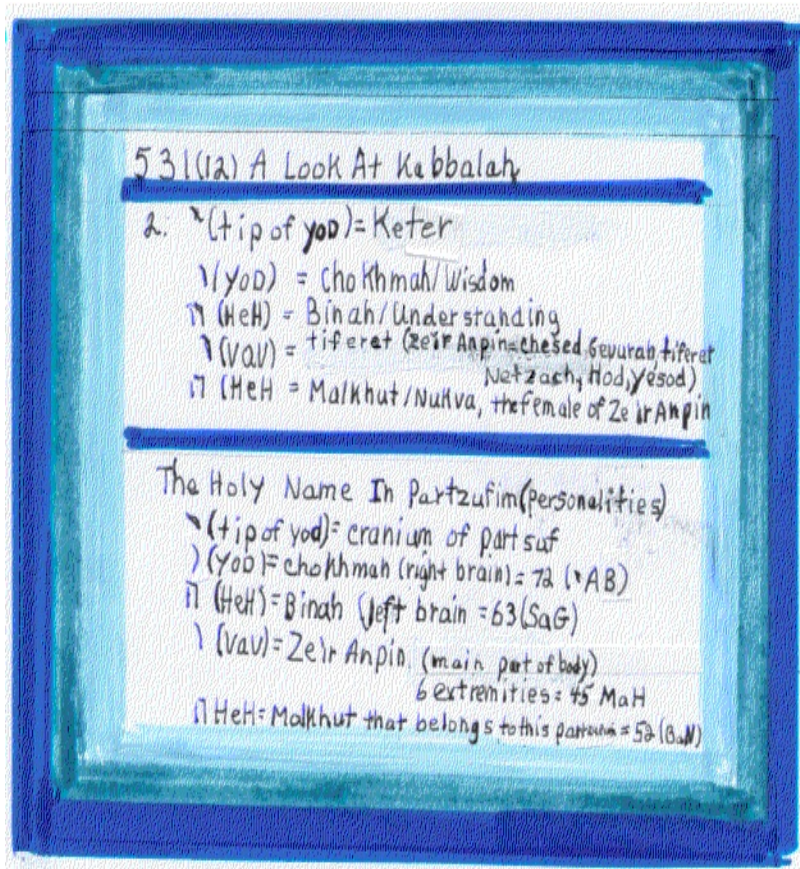 531(12) A Look At Kabbalah
2. (tip of yoD)= Keter
(yoD) = chokhmah/Wisdom
ה (HeH) = Binah/Understanding
ו (VaV) = tiferet (zeir Anpin=chesed Gevurah, tiferet
Netzach, Hod, Yesod)
ה (HeH = Malkhut/Nukva, the female of Ze'ir Anpin
The Holy Name In Partzufim(personalities)
(tip of yod)= cranium of partsuf
(YoD)=chokhmah (right brain)= 72 ('AB)
ה (HeH)=Binah (left brain =63(SaG)
ו (Vav)=Ze'ir Anpin. (main part of body)
6 extremities= 45 MaH
ה HeH=Malkhut that belongs to this = 52 (BaN)